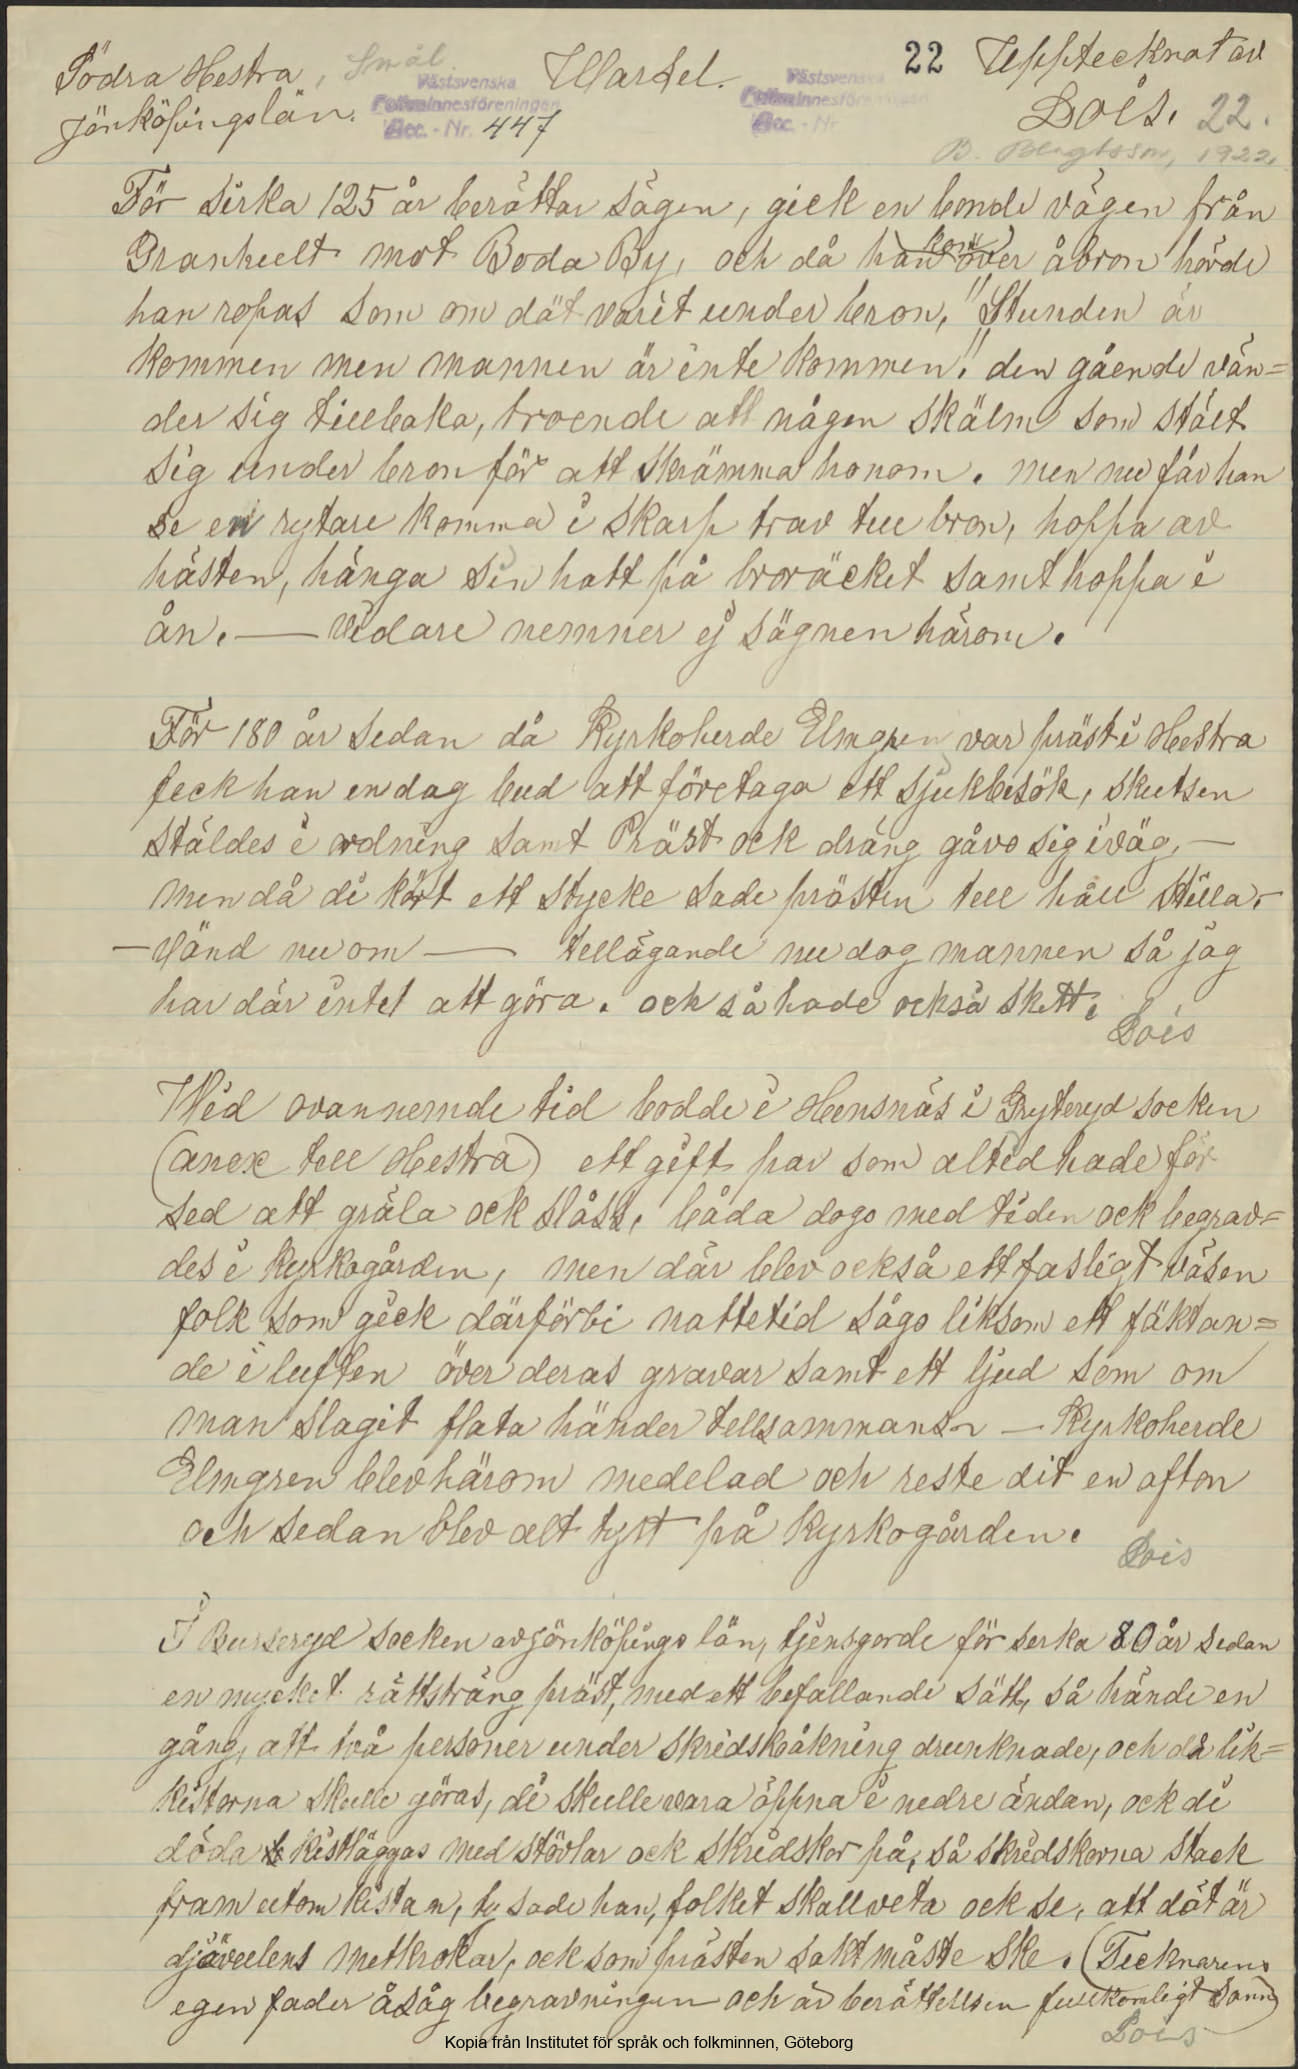 Södra Hestra, Smål. Warsel. 22 Upptecknat av
Jönköpingslän. Västsvenska Folkminnesföreningen Acc. - Nr. 447 Västsvenska Folkminnesföreningen Acc. - Nr Dois. 22.
B. Bengtsson, 1922.
För sirka 125 år berättar sägen, gick en bonde vägen från
Granhult mot Boda By, och då han kom över åbron hörde
han ropas som om dät varit under bron, "Stunden är
kommen men mannen är inte kommen". den gående vän=
der sig tillbaka, troende att någon skälm som stält
sig under bron för att skrämma honom. men nu får han
se en rytare komma i skarp trav till bron, hoppa av
hästen, hänga sin hatt på broräcket samt hoppa i
ån. — Vidare nemner ej sägnen härom.
För 180 år sedan då Kyrkoherde Elmgren var präst i Hestra
feck han en dag bud att företaga ett sjukbesök, skutsen
stäldes i ordning samt Präst ock dräng gåvo sig iväg, —
men då di kört ett stycke sade prästen tell håll stilla. –
— vänd nu om — tellägande nu dog mannen så jag
har där intet att göra. och så hade också skett.
Dois
Wid ovannemde tid bodde i Hensnäs i Gryteryd socken
(anex tell Hestra) ett gift par som altid hade för
sed att gräla ock slåss, båda dogo med tiden ock begrav=
des i kyrkogården, men där blev också ett fasligt väsen
folk som gick därförbi nattetid sågo liksom ett fäktan=
de i luften över deras gravar samt ett ljud som om
man slagit flata händer tellsammans — Kyrkoherde
Elmgren blev härom medelad och reste dit en afton
och sedan blev alt tyst på kyrkogården.
Dois
I Burseryd socken av Jönköpings län, tjensgorde för serka 80 år sedan
en mycket rättsträng präst, med ett befallande sätt, så hände en
gång, att två personer under skridskoåkning drunknade, och då lik=
kistorna skulle göras, di skulle vara öppna i nedre ändan, ock di
döda kistläggas med stövlar ock skridskor på, så skridskorna stack
fram utom kistan, ty sade han, folket skall veta ock se, att dät är
djävulens metkrokar, ock som prästen sakt måste ske. (Tecknarens
egen fader åsåg begravningen och är berättelsen fullkomligt sann)
Dois
Kopia från Institutet för språk och folkminnen, Göteborg